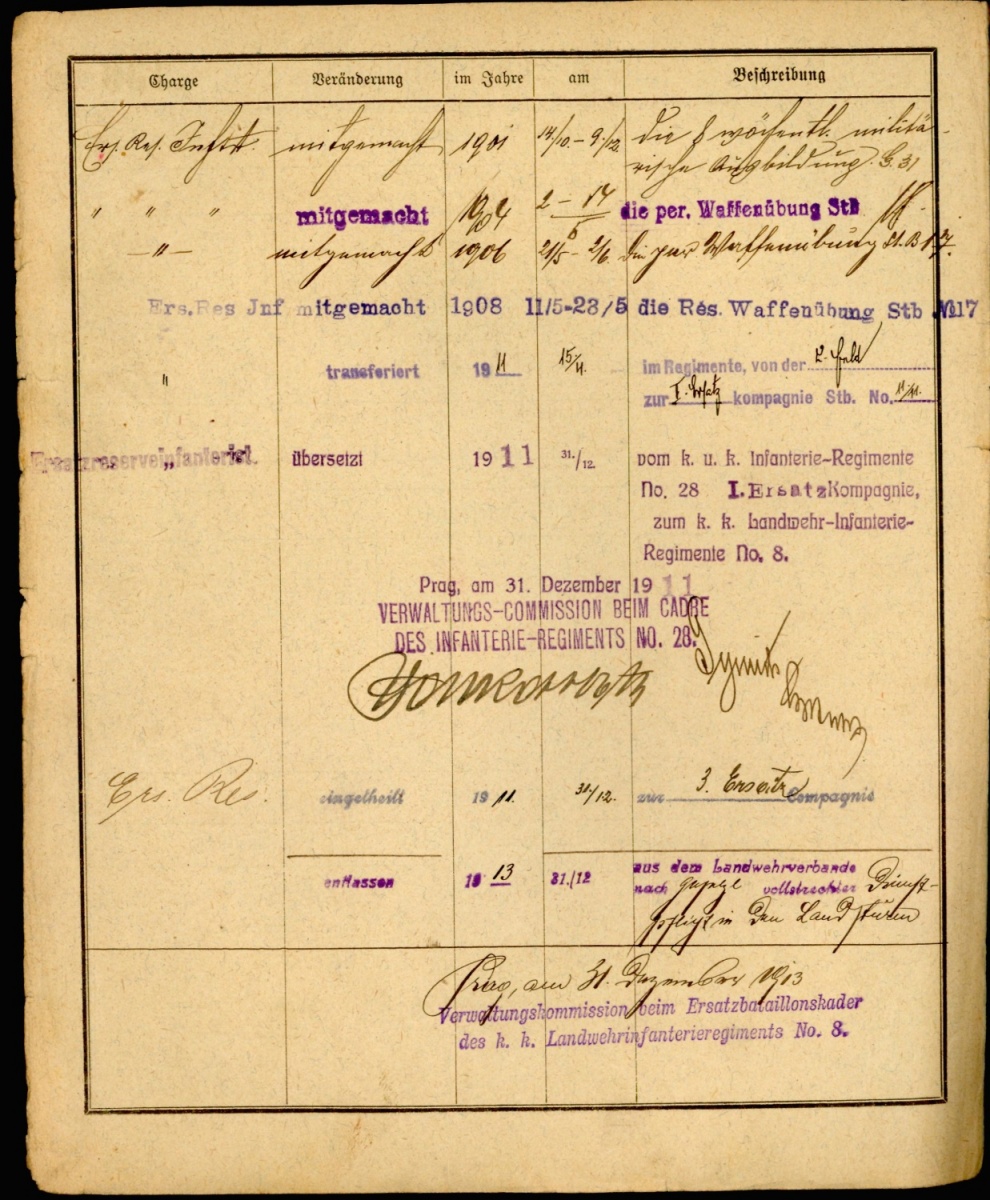 Charge Veränderung im Jahre am Beschreibung
Ers. Res. Inftst. mitgemacht 1901 14/10. - 9./12. die 8 wöchentl. militä-
rische Ausbildung.
" " " mitgemacht 1904 2 - 14 die per. Waffenübung Stb
6
— " — mitgemacht 1906 21/5 - 2/6. die per Waffenübung St. B
Ers.Res Jnf mitgemacht 1908 11/5-23/5 die Res. Waffenübung Stb №17
" transferiert 1911 15/11. im Regimente, von der 2. Feld
zur I. Ersatz kompagnie Stb. No. 11/11.
Ersatzreserveinfanterist. „ übersetzt 1911 31./12. vom k. u. k. Infanterie-Regimente
No. 28 I. Ersatz Kompagnie,
zum k. k. Landwehr-Infanterie-
Regimente No. 8.
Prag, am 31. Dezember 1911
VERWALTUNGS-COMMISSION BEIM CADRE
DES INFANTERIE-REGIMENTS NO. 28.
Ers. Res. eingetheilt 1911. 31/12. zur 3. Ersatz Compagnie
entlassen 1913 31./12 aus dem Landwehrverbande
nach gesetzl vollstreckter Dienst-
pflicht in den Landsturm
Prag, am 31. Dezember 1913
Verwaltungskommission beim Ersatzbataillonskader
des k. k. Landwehrinfanterieregiments No. 8.